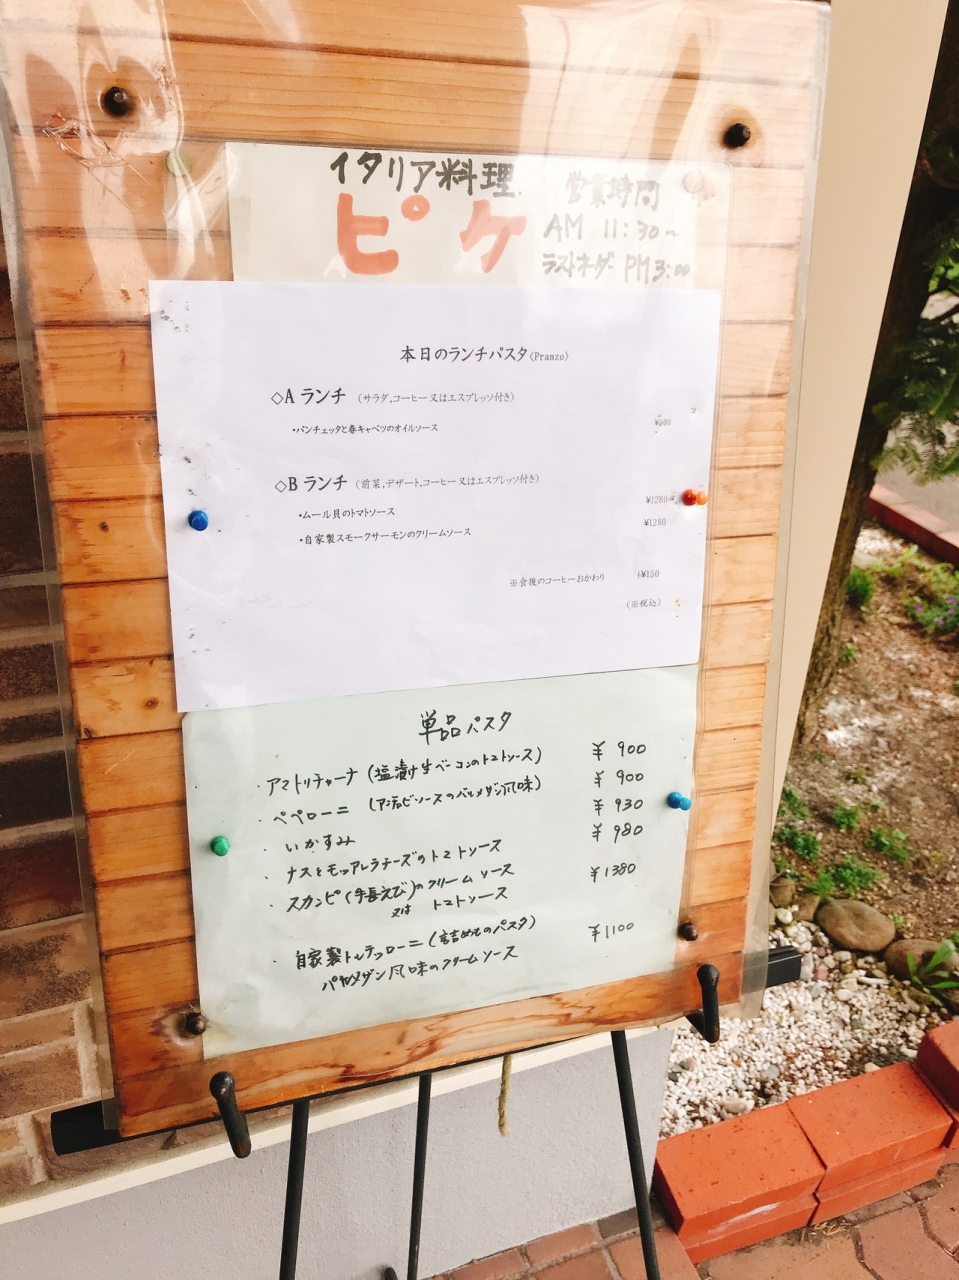 イタリア料理
ピケ
営業時間
AM 11:30~
ラストオーダー PM3:00
本日のランチパスタ〈Pranzo〉
◇Aランチ (サラダ,コーヒー又はエスプレッソ付き)
・パンチェッタと春キャベツのオイルソース ¥900
◇Bランチ (前菜,デザート,コーヒー又はエスプレッソ付き)
・ムール貝のトマトソース ¥1280
・自家製スモークサーモンのクリームソース ¥1280
※食後のコーヒーおかわり +¥150
(※税込)
単品パスタ
・アマトリチャーナ (塩漬け生ベーコンのトマトソース) ¥900
・ペペローニ (アンチョビソースのパルメザン風味) ¥900
・いかすみ ¥930
・ナスとモッツァレラチーズのトマトソース ¥980
・スカンピ(手長えび)のクリームソース ¥1380
又は トマトソース
・自家製トルテッローニ(詰めものパスタ) ¥1100
パルメザン風味のクリームソース